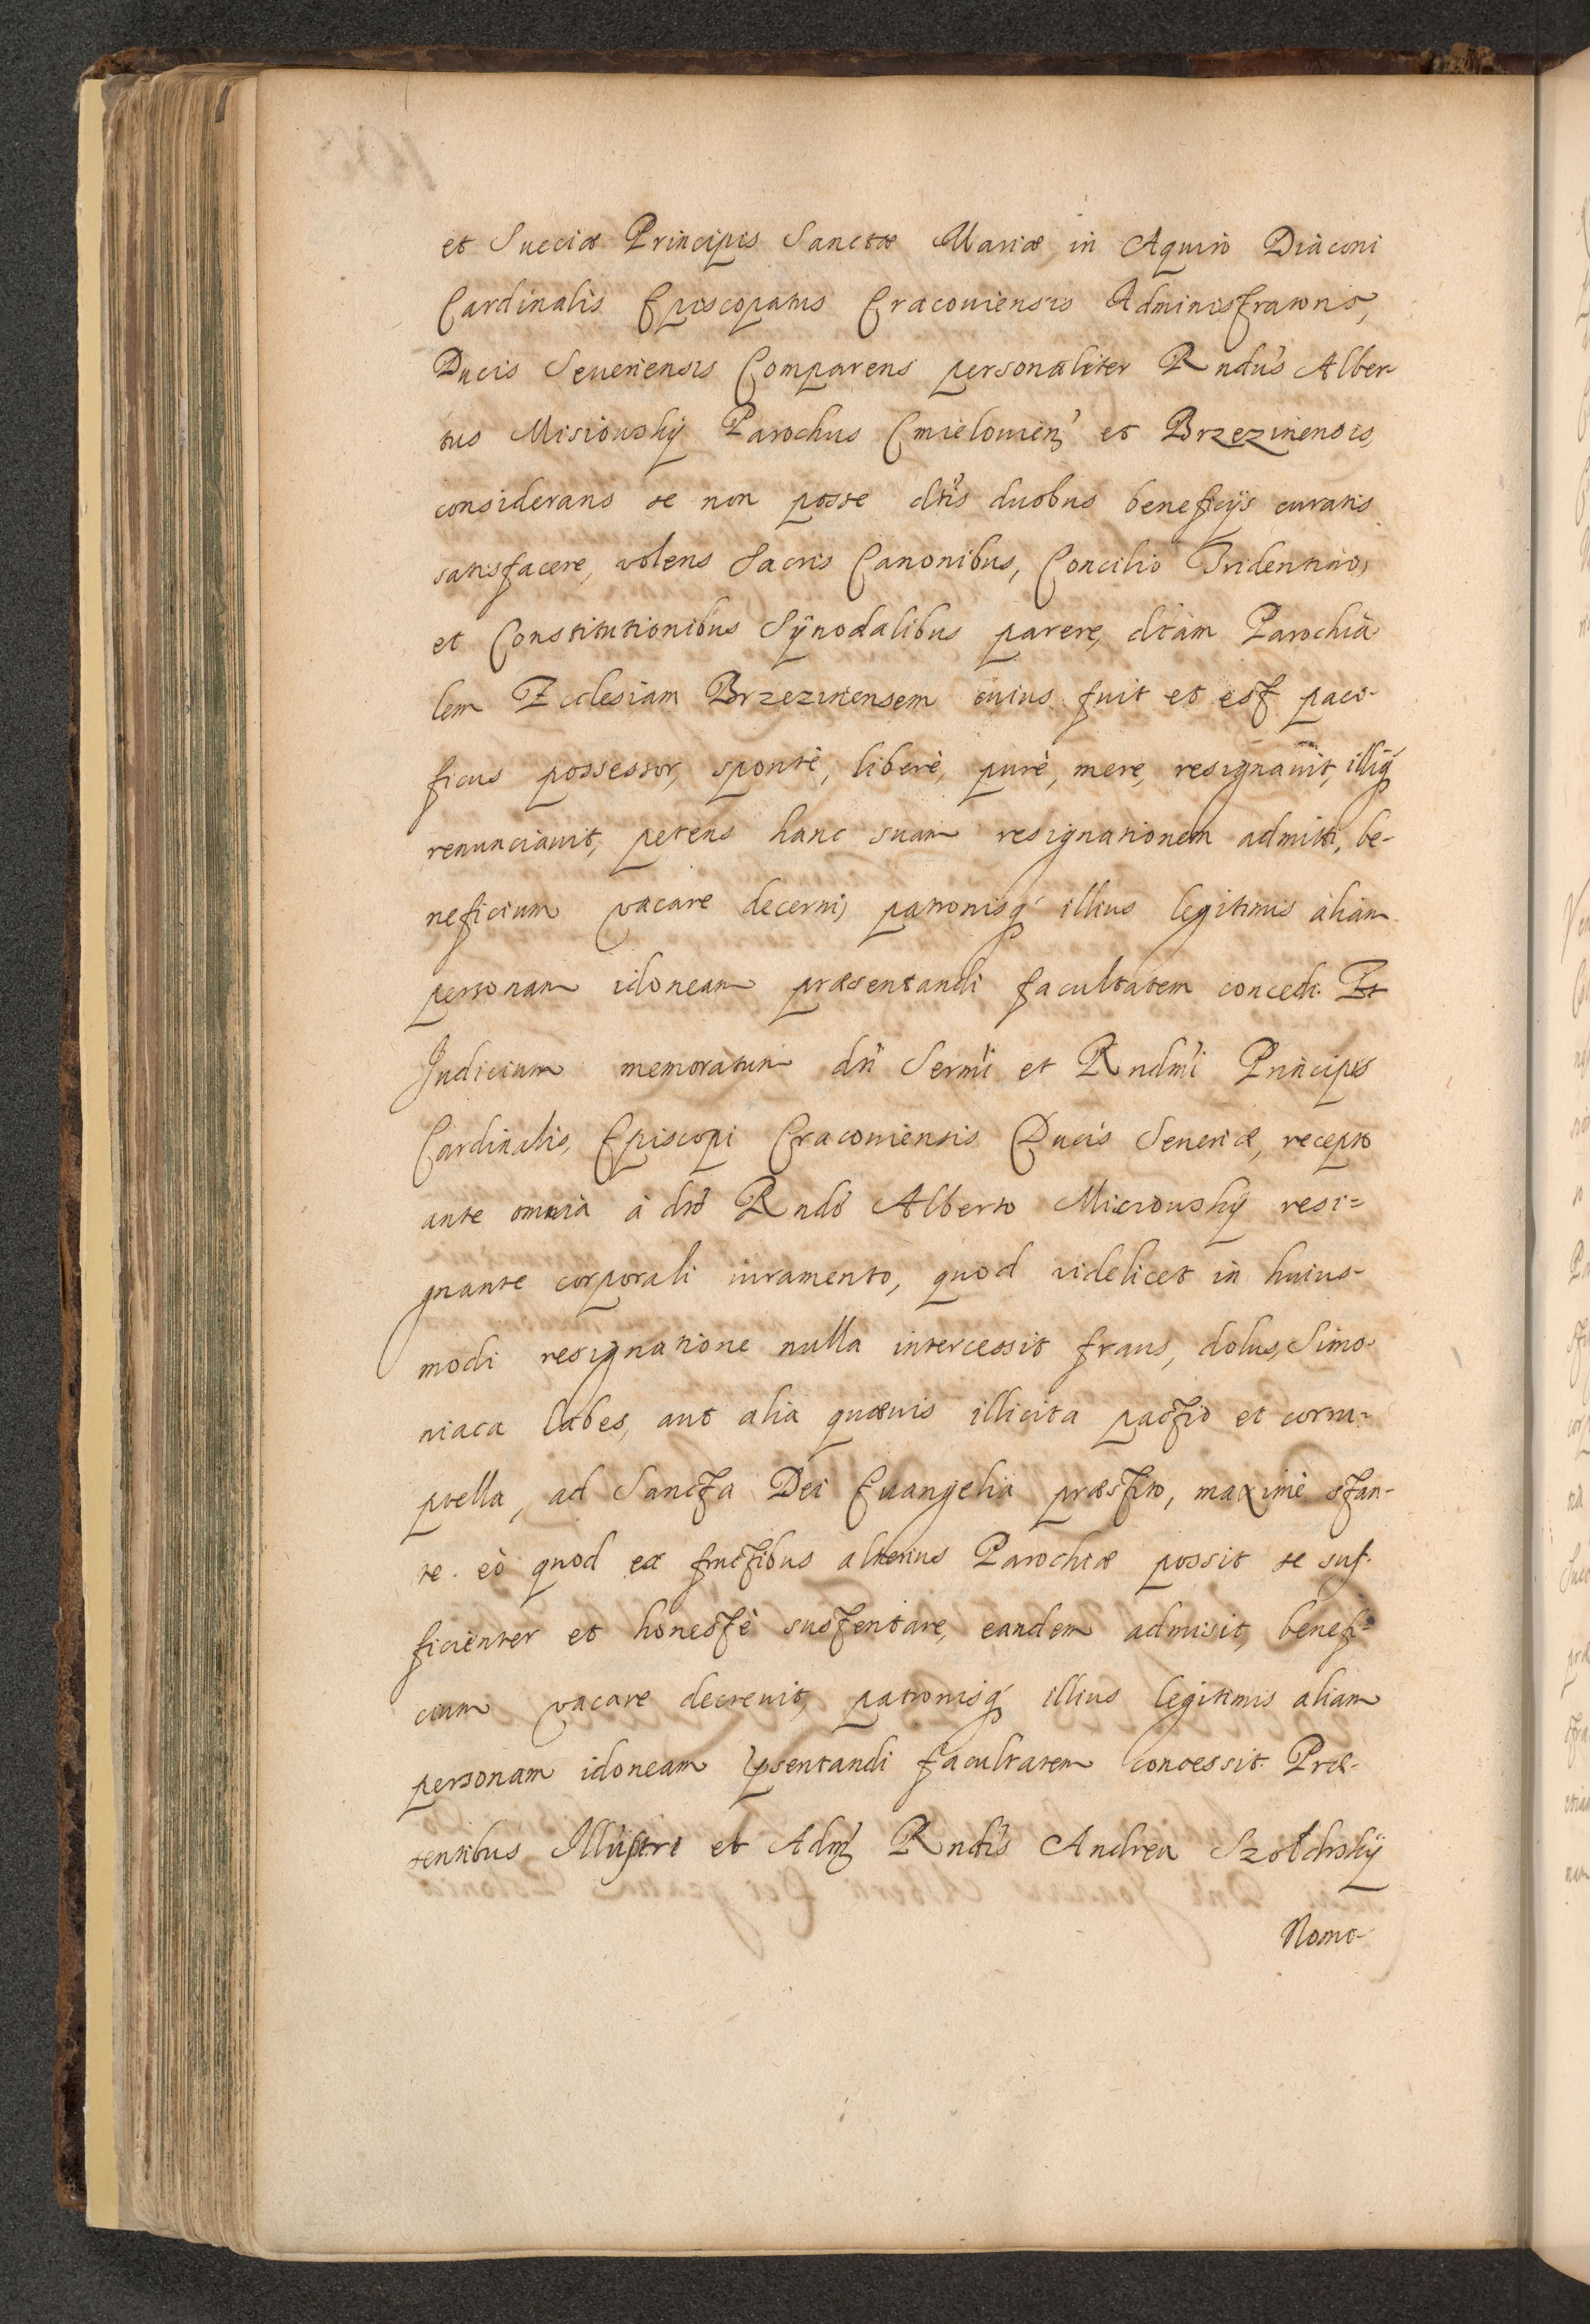 et Sueciæ Principis Sanctæ Mariæ in Aquiro Diaconi
Cardinalis Episcopatus Cracouiensis Administratoris,
Ducis Seueriensis Comparens personaliter Rndus Alber-
tus Misiowskÿ Parochus Cmielouien̄ et Brzezinensis,
considerans se non posse dtis duobus beneficijs curatis
satisfacere, volens Sacris Canonibus, Concilio Tridentino,
et Constitutionibus Sÿnodalibus parere, dtam Parochia-
lem Ecclesiam Brzezinensem cuius fuit et est paci-
ficus possessor, spontè, liberè, purè, mere, resignauit, illiq́
renunciauit, petens hanc suam resignationem admitti, be-
neficium vacare decerni, patronisq́ illius legitimis aliam
personam idoneam præsentandi facultatem concedi. Et
Judicium memoratum dn̄i Serm̄i et Rndm̄i Principis
Cardinalis, Episcopi Cracouiensis Ducis Seueriæ, recepto
ante omnia à dto Rndo Alberto Miciowskÿ resi-
gnante corporali iuramento, quod videlicet in huius-
modi resignatione nulla intercessit fraus, dolus, Simo-
niaca labes, aut alia quæuis illicita pactio et corru-
ptella, ad Sancta Dei Euangelia præstito, maximè stan-
te. eò quod ex fructibus alterius Parochiæ possit se suf-
ficienter et honestè sustentare, eandem admisit, benefi-
cium vacare decreuit, patronisq́ illius legitimis aliam
personam idoneam p̄sentandi facultatem concessit. Præ-
sentibus Illustri et Adm̄ Rndis Andrea Szołdrskÿ
Nomi-